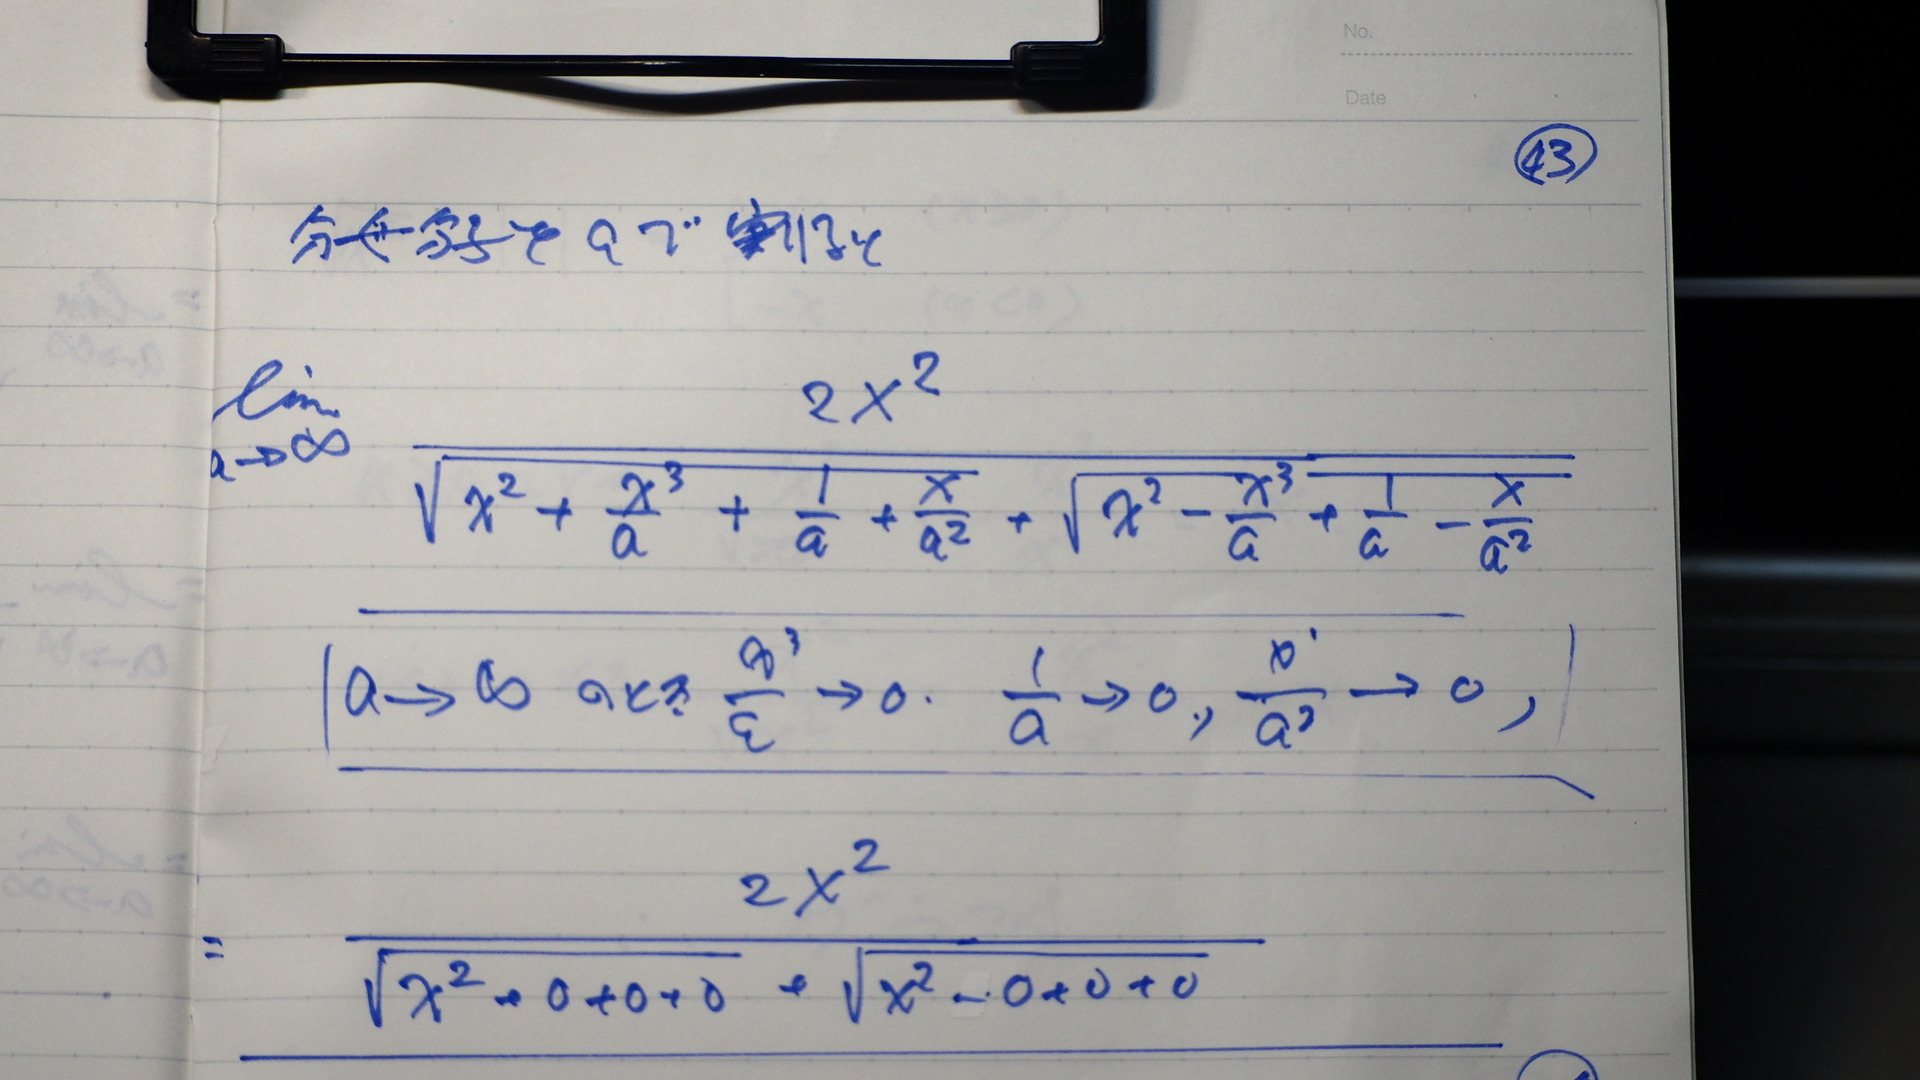 No.
Date
43
分母分子を a で 割ると
lim a→∞ 2x² / (√(x² + x³/a + 1/a + x/a²) + √(x² - x³/a + 1/a - x/a²))
a→∞ のとき x³/a →0. 1/a →0, x/a² → 0,
= 2x² / (√(x² + 0+0+0) + √(x² - 0+0+0))